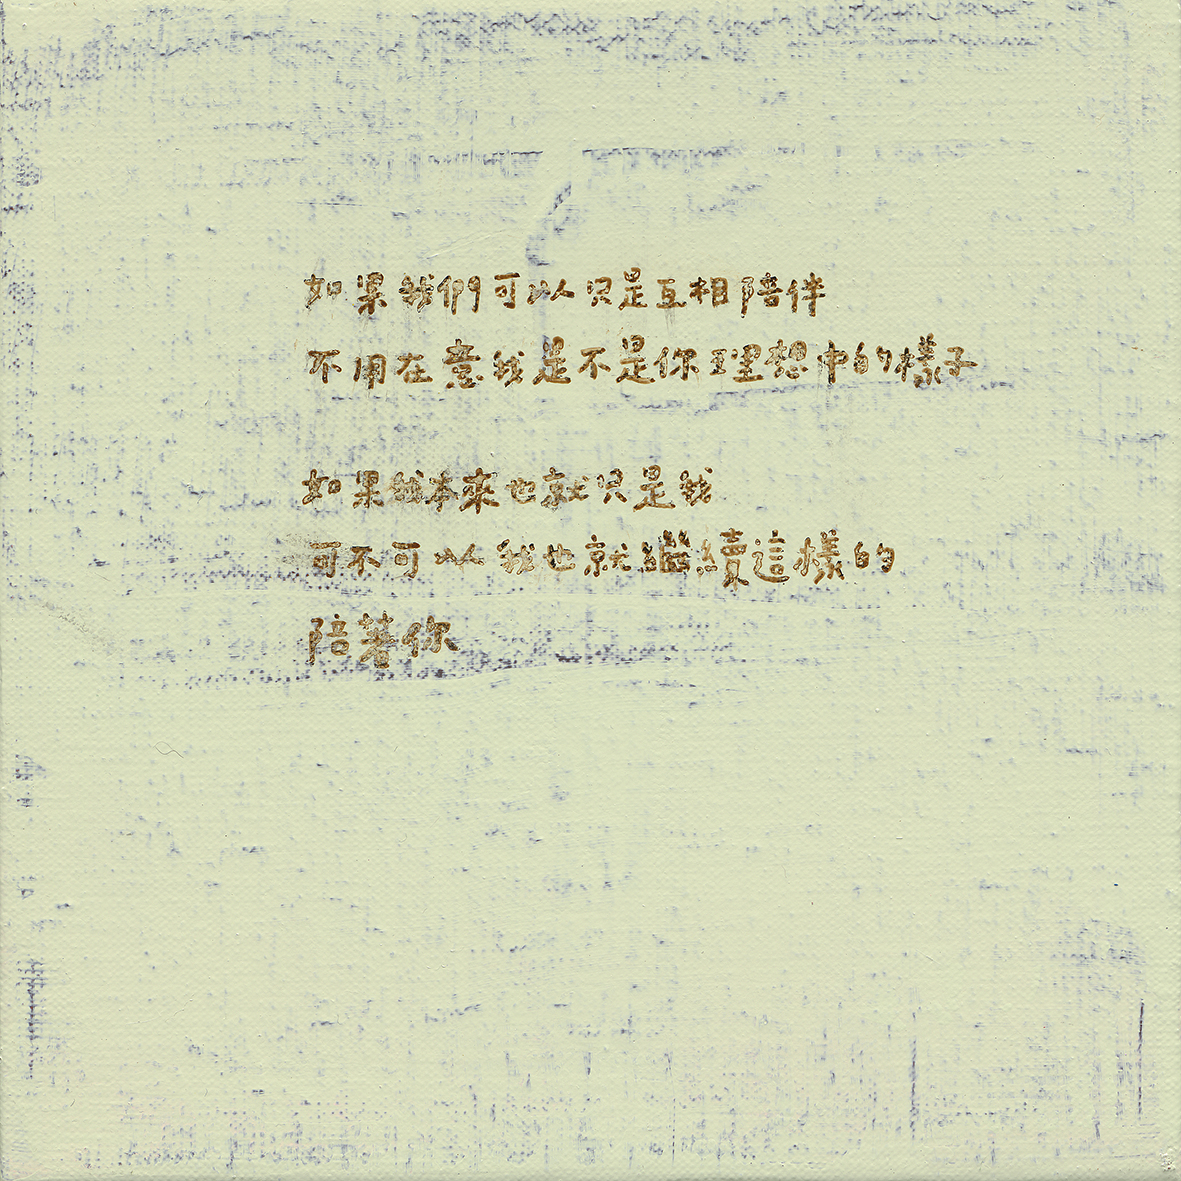 如果我們可以只是互相陪伴
不用在意我是不是你理想中的樣子
如果我本來也就只是我
可不可以我也就繼續這樣的
陪著你